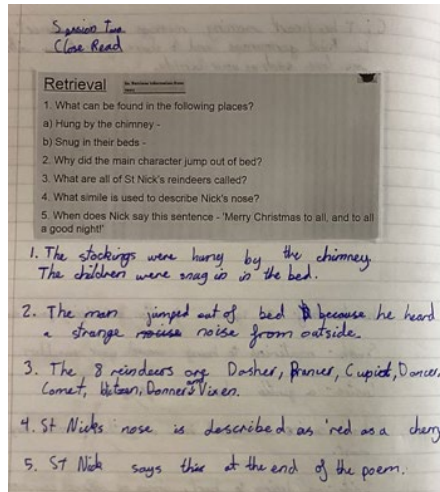 Session Two
Close Read
Retrieval
1. What can be found in the following places?
a) Hung by the chimney -
b) Snug in their beds -
2. Why did the main character jump out of bed?
3. What are all of St Nick's reindeers called?
4. What simile is used to describe Nick's nose?
5. When does Nick say this sentence - 'Merry Christmas to all, and to all
a good night!'
1. The stockings were hung by the chimney.
The children were snug in in the bed.
2. The man jumped out of bed because he heard
a strange noise from outside.
3. The 8 reindeers are Dasher, Prancer, Cupid, Dancer,
Comet, Donner Vixen.
4. St Nick's nose is described as 'red as a cherry
5. ST Nick says this at the end of the poem.